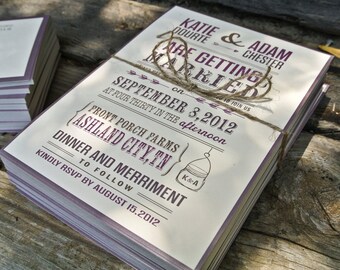 KATIE & ADAM
DOURTE CHESTER
ARE GETTING
MARRIED
SEPTEMBER 3, 2012
AT FOUR THIRTY IN THE afternoon
FRONT PORCH FARMS
ASHLAND CITY, TN
K&A
DINNER AND MERRIMENT
TO FOLLOW
KINDLY RSVP BY AUGUST 15, 2012